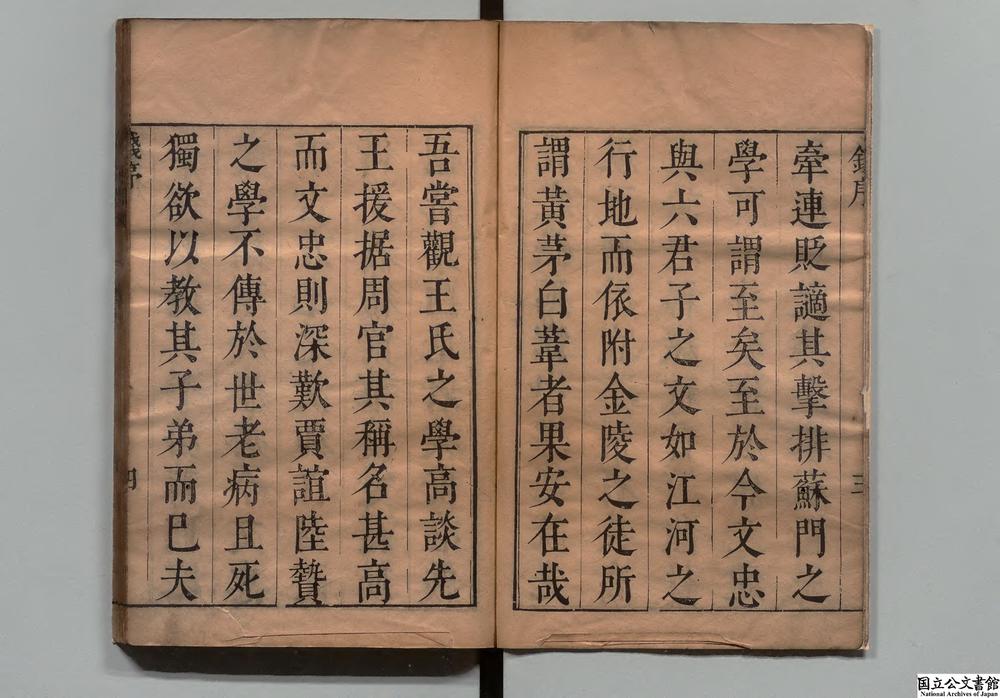 牽連貶謫其擊排蘇門之
學可謂至矣至於今文忠
與六君子之文如江河之
行地而依附金陵之徒所
謂黃茅白葦者果安在哉
吾嘗觀王氏之學高談先
王援据周官其稱名甚高
而文忠則深歎賈誼陸贄
之學不傳於世老病且死
獨欲以教其子弟而已夫
序
三
四
国立公文書館
National Archives of Japan